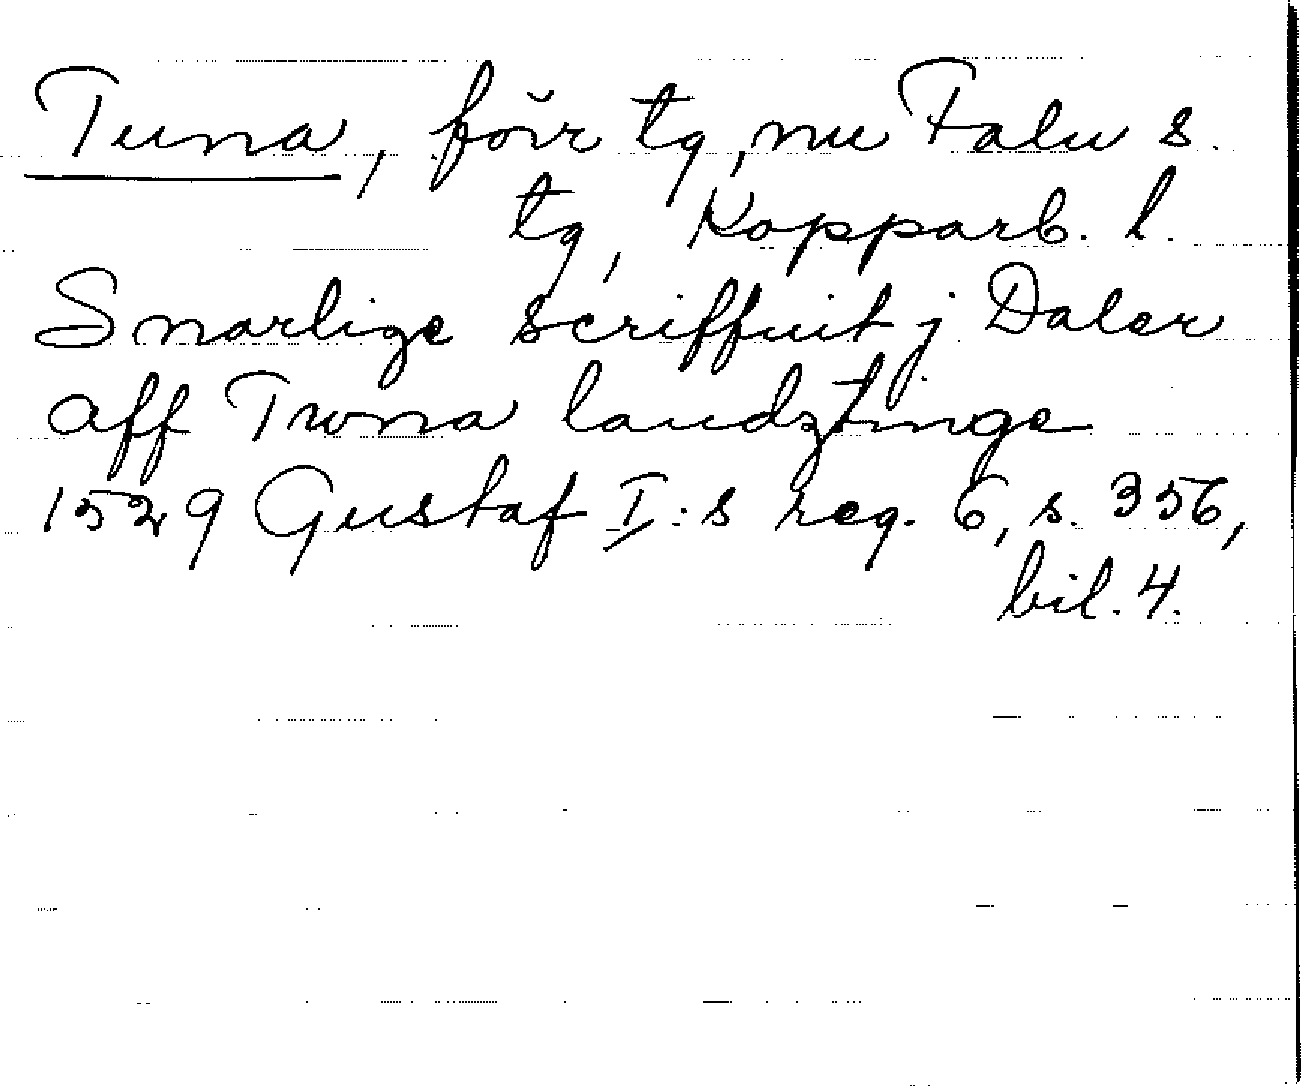 Tuna, förr tg, nu Falu s.
tg, Kopparb. l.
Snarlige scriffuit j Daler
aff Twna landztinge
1529 Gustaf I:s reg. 6, s. 356,
bil. 4.